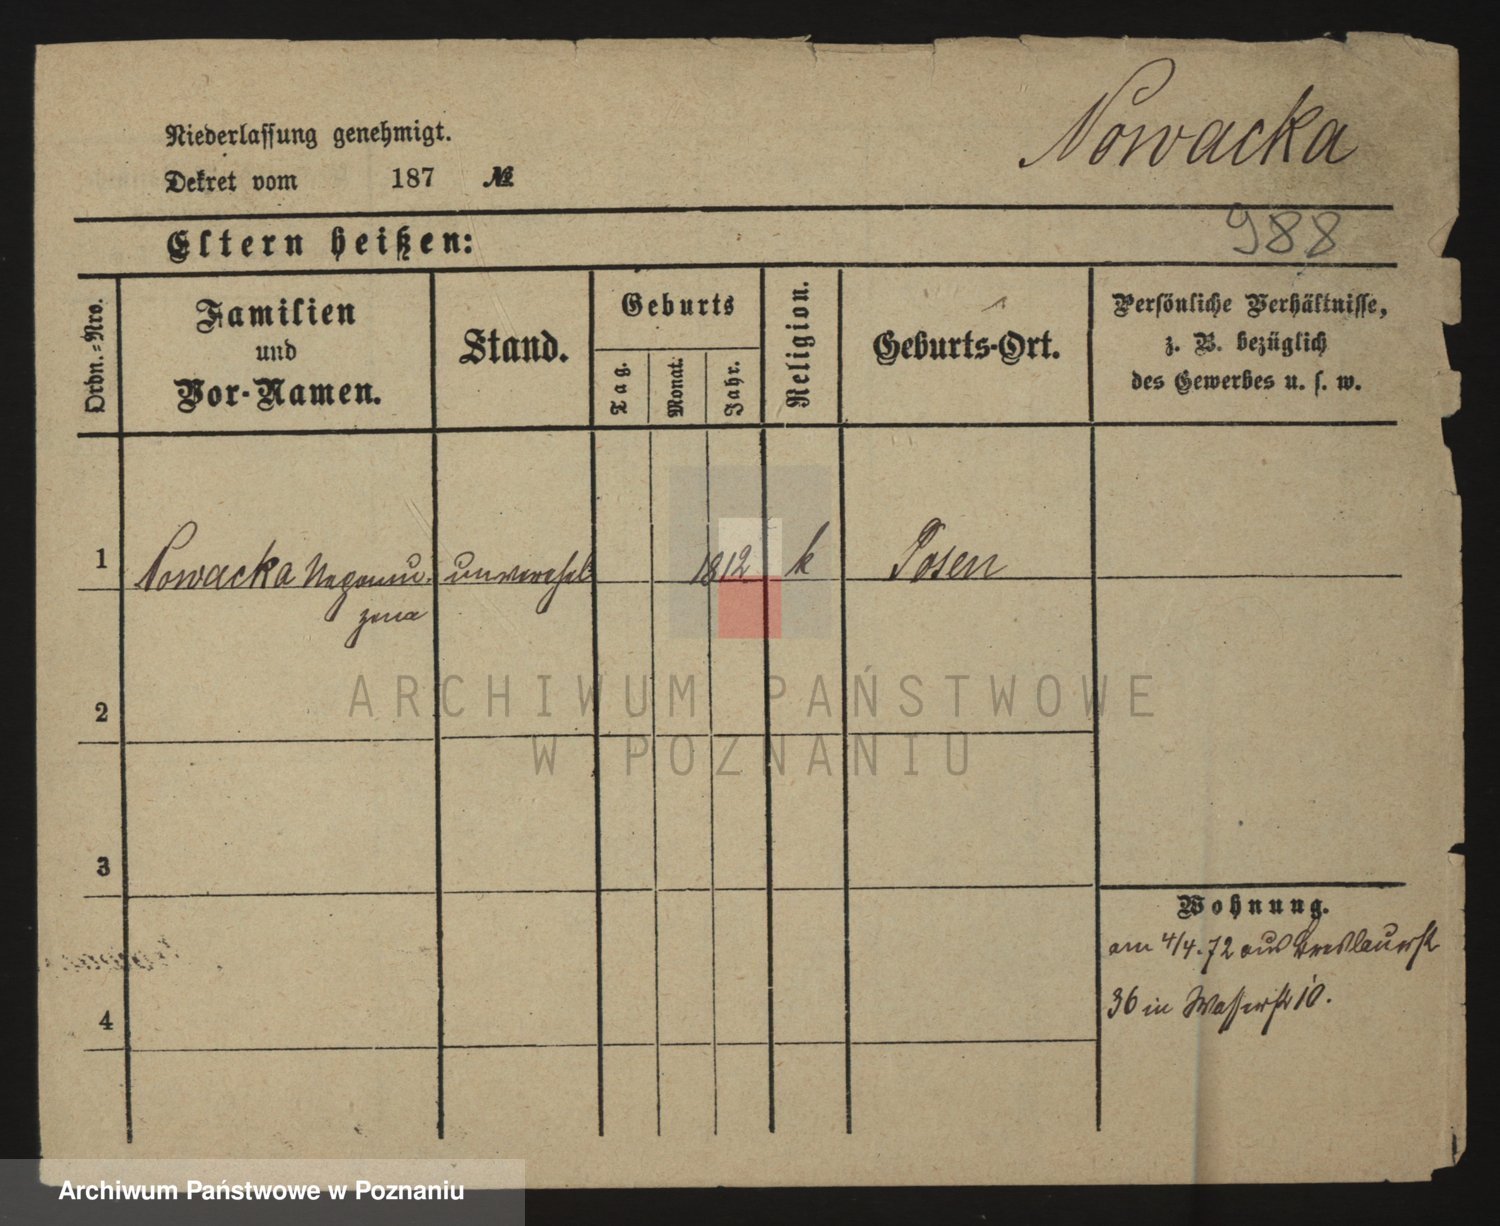 Nowacka
Niederlassung genehmigt.
Dekret vom 187 №
988
Eltern heißen:
Ordn.-Nro.
Familien
und
Vor-Namen.
Stand.
Geburts
Tag.
Monat.
Jahr.
Religion.
Geburts-Ort.
Persönliche Verhältnisse,
z. B. bezüglich
des Gewerbes u. s. w.
1 Nowacka Nepomu- unverehel. 1812 k Posen
zena
2
3
4
Wohnung.
am 4/4.72 aus Breslauerst
36 in Wasserstr 10.
ARCHIWUM PAŃSTWOWE
W POZNANIU
Archiwum Państwowe w Poznaniu